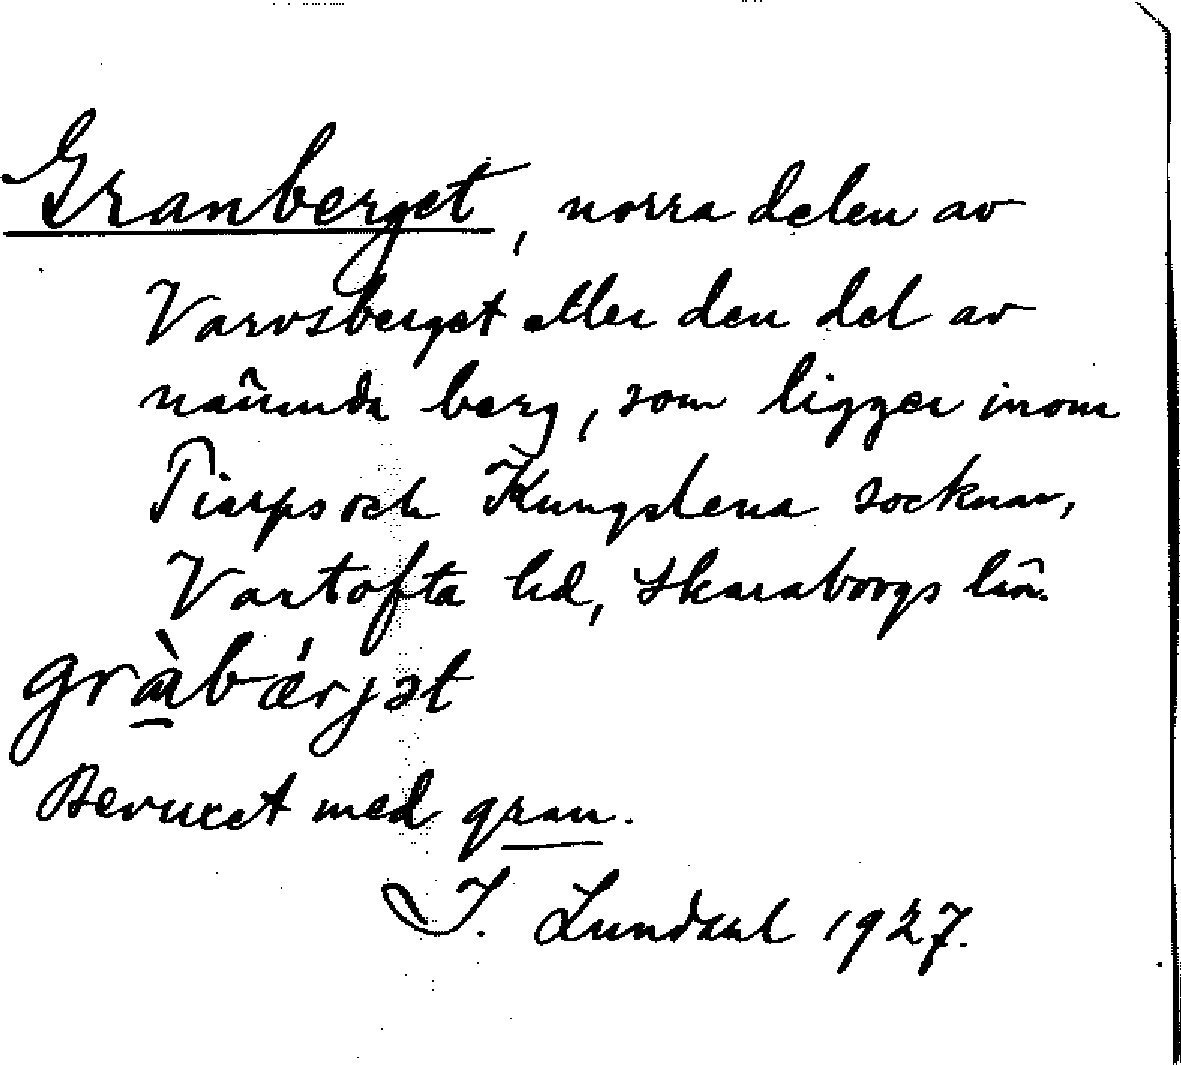 Granberget, norra delen av
Varvsberget eller den del av
nämnda berg, som ligger inom
Tiarps och Kungslena socknar,
Vartofta hd, Skaraborgs län.
gràbǽrjət
Bevuxet med gran.
I. Lundahl 1927.